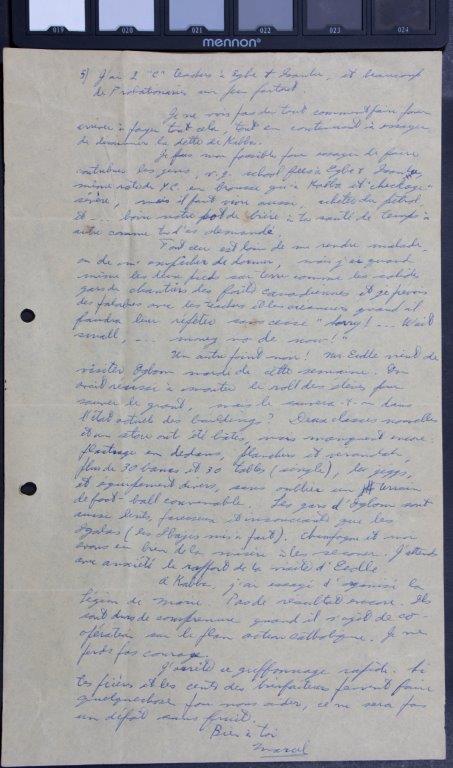 019 020 021 022 023 024
mennon
5) J'ai 2 "C" teachers à Egbe & Isanlu, et beaucoup
de Probationaries un peu partout.
Je ne vois pas du tout comment faire pour
arriver à payer tout cela tout en continuant à essayer
de diminuer la dette de Kabba.
Je fais mon possible pour essayer de faire
contribuer les gens, v.g. school fees à Egbe & Isanlu,
même rate de en brousse qu'à Kabba et "checkage"
sévère, mais il faut vivre aussi, acheter du pétrol.
Et ... boire notre pot de bière à ta santé de temps à
autre comme tu l'as demandé.
Tout ceci est loin de me rendre malade
ou de m'empêcher de dormir, mais j'ai quand
même les deux pieds sur terre comme les solides
gars de chantiers des forêts canadiennes et je prévois
des palabres avec les teachers et les créanciers quand il
faudra leur répéter sans cesse "Sorry! ... Wait
small, ... money no de now!"
Un autre point noir! Mr Eedle vient de
visiter Ogbom mardi de cette semaine. On
avait réussi à monter le roll des élèves pour
sauver le grant, mais le sauvera-t-on dans
l'état actuel des buildings? Deux classes nouvelles
et un store ont été bâtis, mais manquent encore
plâtrage en dedans, planchers et verandah,
plus de 30 bancs et 30 tables (simple), les
et équipement divers, sans oublier un terrain
de foot-ball convenable. Les gars d'Ogbom sont
aussi lents, paresseux et insouciants que les
Igalas (les Ibajis mis à part). Champagne et moi
avons eu bien de la misère à les secouer. J'attends
avec anxiété le rapport de la visite d'Eedle.
A Kabba, j'ai essayé d'organiser la
Légion de Marie. Pas de résultat encore. Ils
sont durs de comprenure quand il s'agit de co-
opération sur le plan action catholique. Je ne
perds pas courage.
J'arrête ce griffonnage rapide. Si
tes prières et les cents des bienfaiteurs peuvent faire
quelque chose pour nous aider, ce ne sera pas
un dépôt sans fruit.
Bien à toi
Marcel